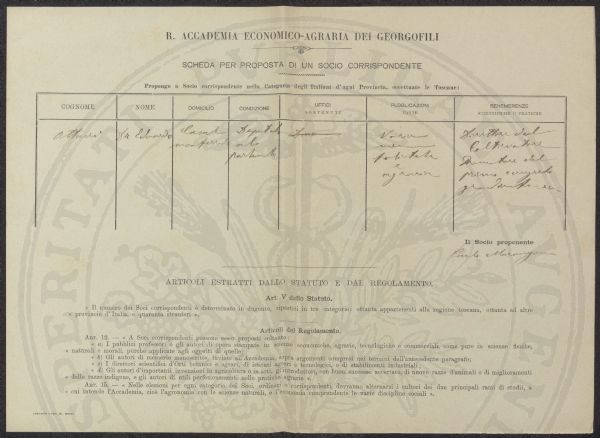 R. ACCADEMIA ECONOMICO-AGRARIA DEI GEORGOFILI
SCHEDA PER PROPOSTA DI UN SOCIO CORRISPONDENTE
Propongo a Socio corrispondente nella Categoria degli Italiani d'ogni Provincia, eccettuate le Toscane:
COGNOME NOME DOMICILIO CONDIZIONE UFFICI SOSTENUTI PUBBLICAZIONI FATTE BENEMERENZE SCIENTIFICHE O PRATICHE
Ottavi Edoardo Casal Deputato Direttore del
monferrato al Coltivatore
parlamento del
agrarie primo congresso
Il Socio proponente
ARTICOLI ESTRATTI DALLO STATUTO E DAL REGOLAMENTO.
Art. V dello Statuto.
« Il numero dei Soci corrispondenti è determinato in dugento, ripartiti in tre categorie: ottanta appartenenti alle regione toscana, ottanta ad altre
« provincie d'Italia, e quaranta stranieri ».
Articoli del Regolamento.
ART. 12. — « A Soci corrispondenti possono esser proposti soltanto:
« a) I pubblici professori e gli autori di opere stampate in scienze economiche, agrarie, tecnologiche e commerciali, come pure in scienze fisiche,
« naturali e morali, purchè applicate agli oggetti di quelle;
« b) Gli autori di memorie manoscritte, inviate all'Accademia, sopra argomenti compresi nei termini dell'antecedente paragrafo;
« c) I direttori scientifici d'Orti botanici e agrari, di istituti agrari e tecnologici, o di stabilimenti industriali;
« d) Gli autori d'importanti invenzioni in agricoltura o in arti, gl'introduttori, con buon successo accertato, di nuove razze d'animali e di miglioramenti
« delle razze indigene, e gli autori di utili perfezionamenti nelle pratiche agrarie ».
ART. 15. — « Nelle elezioni per ogni categoria dei Soci, ordinari e corrispondenti, dovranno alternarsi i cultori dei due principali rami di studii, a
« cui intende l'Accademia, cioè l'agronomia con le scienze naturali, e l'economia comprendente le varie discipline sociali ».